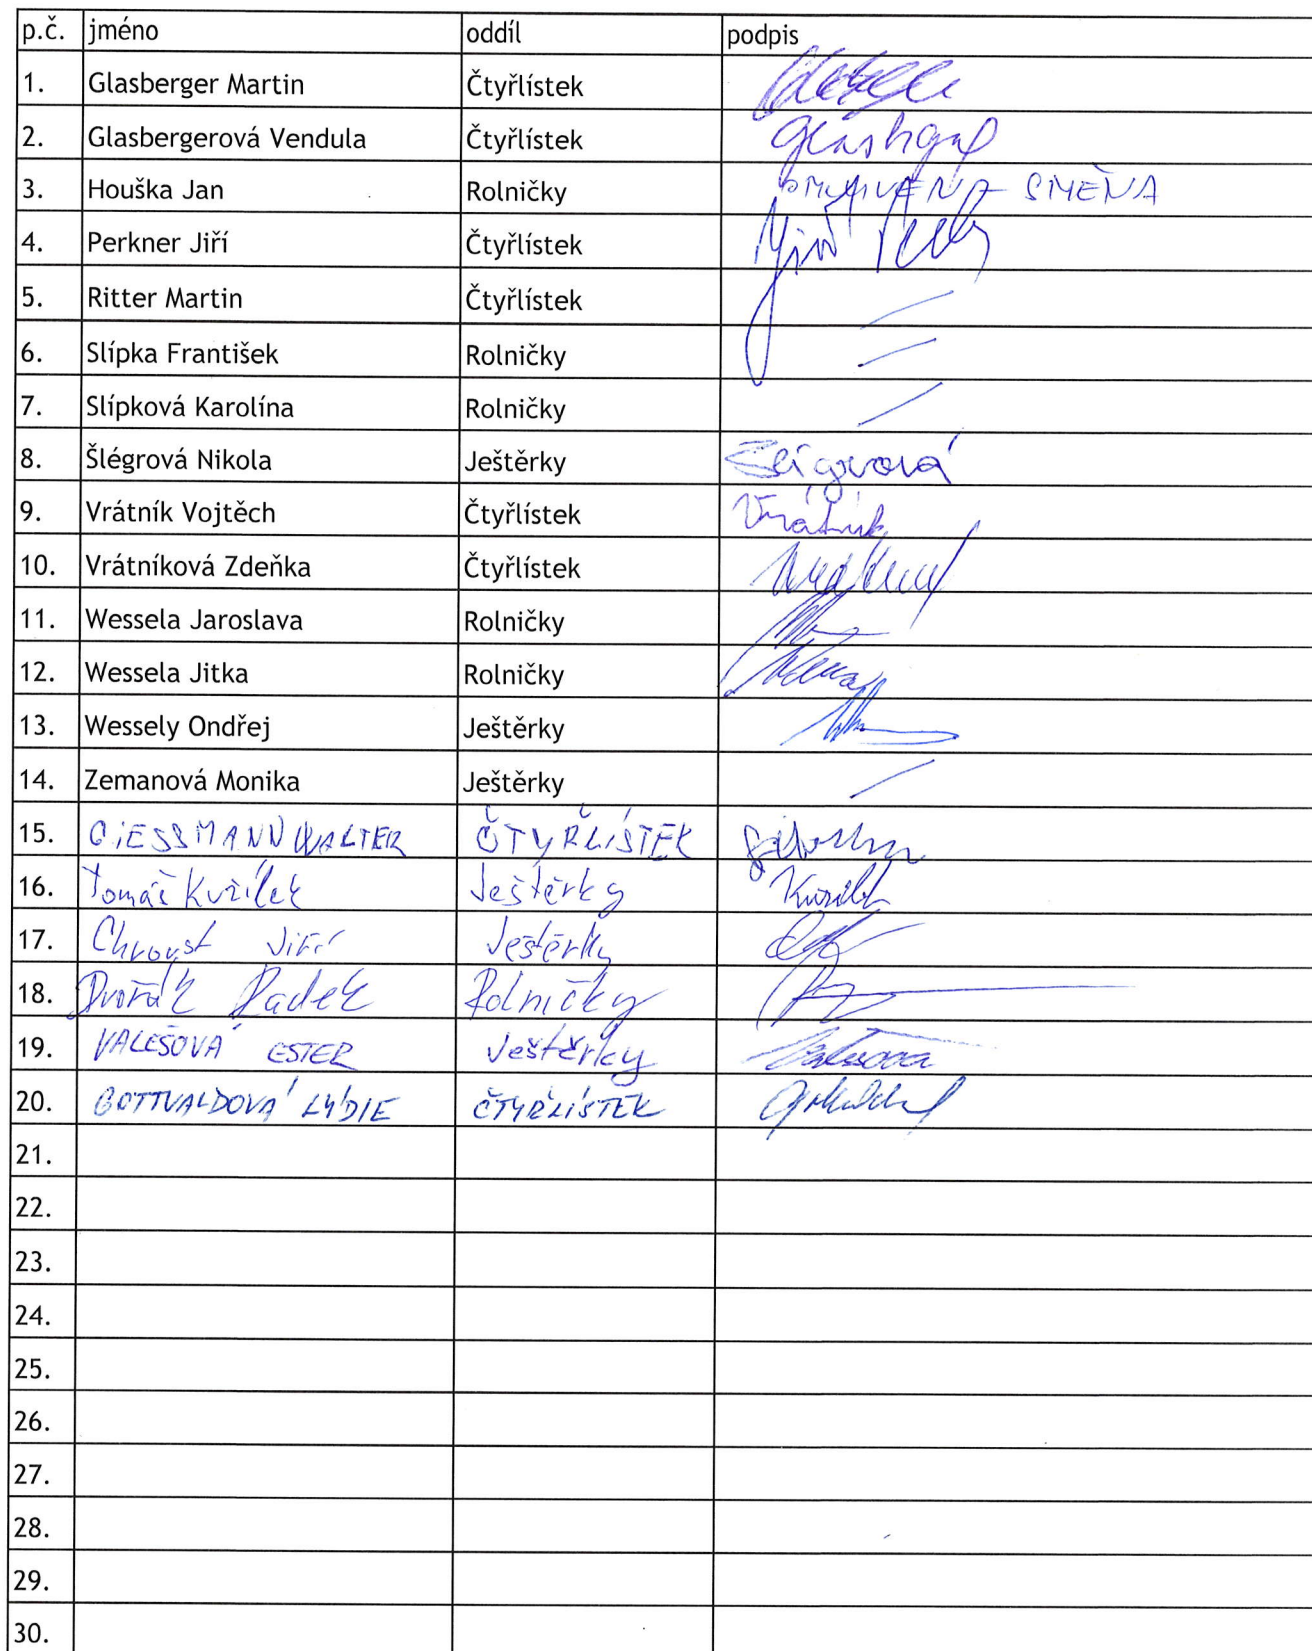 p.č. jméno oddíl podpis
1. Glasberger Martin Čtyřlístek
2. Glasbergerová Vendula Čtyřlístek
3. Houška Jan Rolničky SMĚNA
4. Perkner Jiří Čtyřlístek Jiří
5. Ritter Martin Čtyřlístek
6. Slípka František Rolničky
7. Slípková Karolína Rolničky
8. Šlégrová Nikola Ještěrky
9. Vrátník Vojtěch Čtyřlístek Vrátník
10. Vrátníková Zdeňka Čtyřlístek
11. Wessela Jaroslava Rolničky
12. Wessela Jitka Rolničky
13. Wessely Ondřej Ještěrky
14. Zemanová Monika Ještěrky
15. GIESSMANN WALTER ČTYŘLÍSTEK
16. Tomáš Kužílek Ještěrky
17. Chroust Jiří Ještěrky
18. Dvořák Radek Rolničky
19. VALEŠOVÁ ESTER Ještěrky
20. GOTTVALDOVÁ LÝDIE ČTYŘLÍSTEK
21.
22.
23.
24.
25.
26.
27.
28.
29.
30.